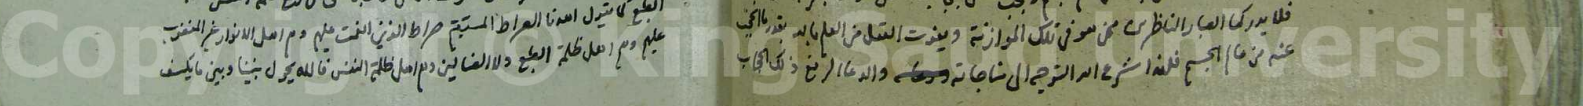 فلا يدركها العبار الناظر من هو في تلك الموازنة ويفوت العقل من العلم بالله بقدر ما انحجب
عنه من عالم الجسم فلهذا شرع الله التوجه الى مناجاته والدعاء لرفع ذلك الحجاب
الطبع كما تقول اهدنا الصراط المستقيم صراط الذين انعمت عليهم وهم اهل الانوار غير المغضوب
عليهم وهم اهل ظلمة الطبع ولا الضالين وهم اهل ظلمة النفس فالله يحول بيننا وبين ما يكسف